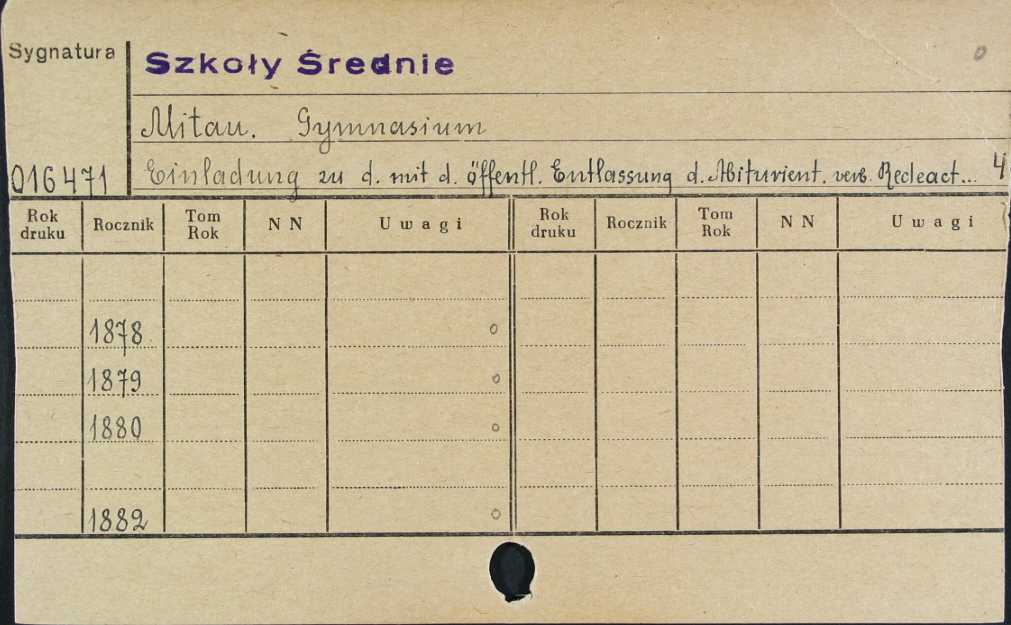 Sygnatura
Szkoły Średnie
0
Mitau. Gymnasium
016471
Einladung zu d. mit d. öffentl. Entlassung d. Abiturient. verb. Redeact... 4
Rok druku Rocznik Tom Rok N N Uwagi Rok druku Rocznik Tom Rok N N Uwagi
1878 0
1879 0
1880 0
1882 0